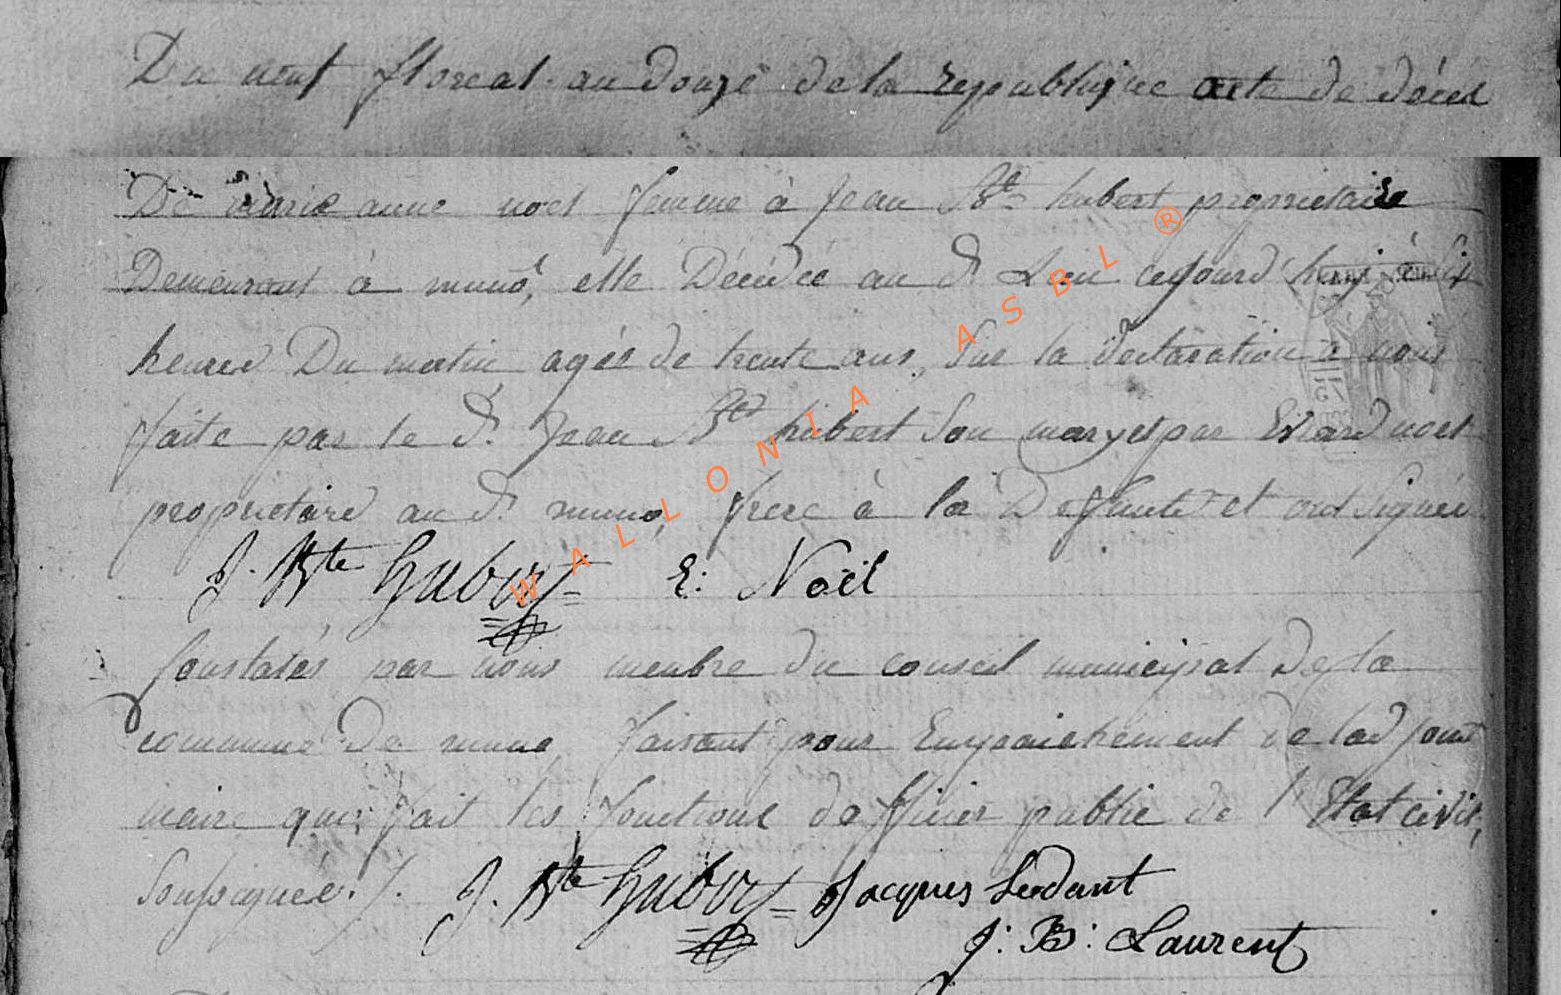 Du neuf floreal an douze de la republique acte de décés
De marie anne noel femme à Jean Bte hubert proprietaire
Demeurant à muno, elle Décédée au d. Lieu cejourd'huy à six
heures Du matin agés de trente ans, Sur la declaration à nous
faite par le d. Jean Bte hubert Son mary et par Evrard noel
proprietaire au d. muno, frere à la Defunte et ont Signés
J. Bte Hubert E: Noël
Constatés par nous menbre du conseil municipal De la
commune De muno faisant pour Empaichement de l'adjoint
maire qui fait les fonctions d'officier public de l'Etat civil,
Soussignés ./.
J. Bte Hubert Jacques Lindant
J: B: Laurent
WALLONIA ASBL ®